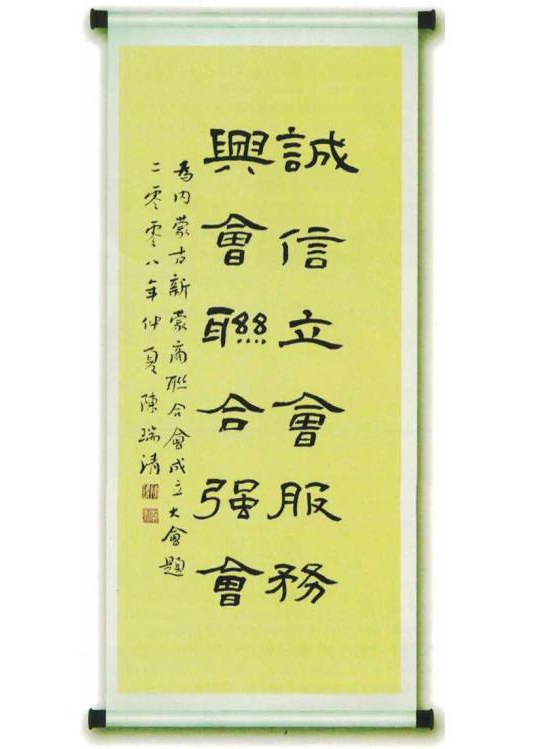 誠信立會服務
興會聯合强會
為内蒙古新蒙商联合會成立大會題
二零零八年仲夏陳瑞清